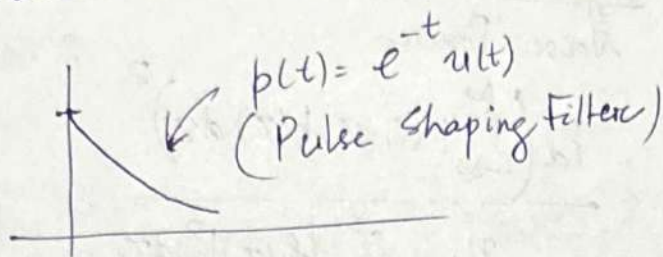 p(t) = e^{-t} u(t)
(Pulse Shaping Filter)